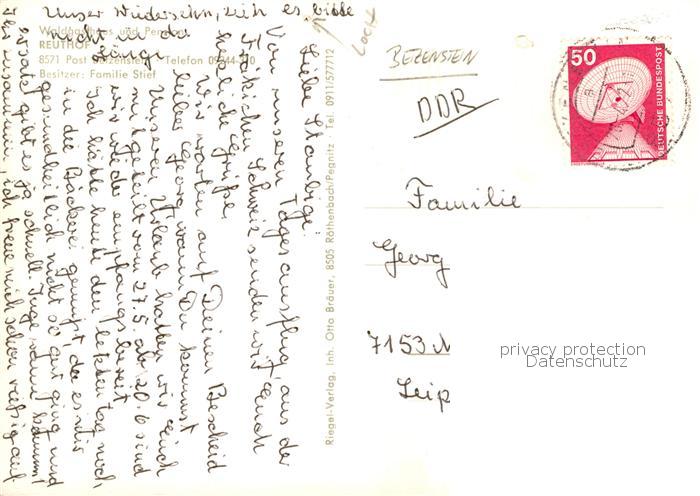 Unser Wiedersehn, zieh es bitte
nicht zu lange
Waldgasthaus und Pension
REUTHOF
8571 Post Betzenstein · Telefon 09244-410
Besitzer: Familie Stief
Liebe
Von unserem Tagesausflug aus der
Fränkischen Schweiz senden wir Euch
liebliche Grüße.
Wir warten auf Deinen Bescheid
lieber Georg, wann Du kommst
Unseren Urlaub hatten wir Euch
mitgeteilt vom 27.5. ab 20.6 sind
wir wieder empfangsbereit.
Ich hätte heute den letzten Tag noch
in die Bäckerei gemußt, da es mir
gesundheitlich nicht so gut ging und
gibt es ja schnell. Inge
ich freue mich schon riesig auf
Riegel-Verlag, Inh. Otto Bräuer, 8505 Röthenbach/Pegnitz · Tel. 0911/577712
BEZENSTEIN
DDR
50
DEUTSCHE BUNDESPOST
Familie
Georg
7153
Leip
privacy protection
Datenschutz